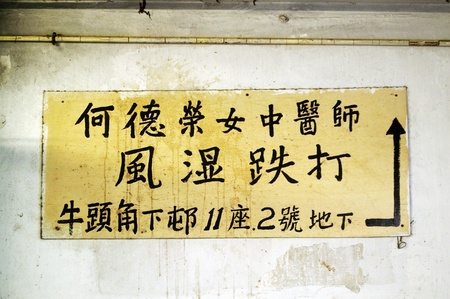 何德榮女中醫師
風湿跌打
牛頭角下邨11座.2號地下